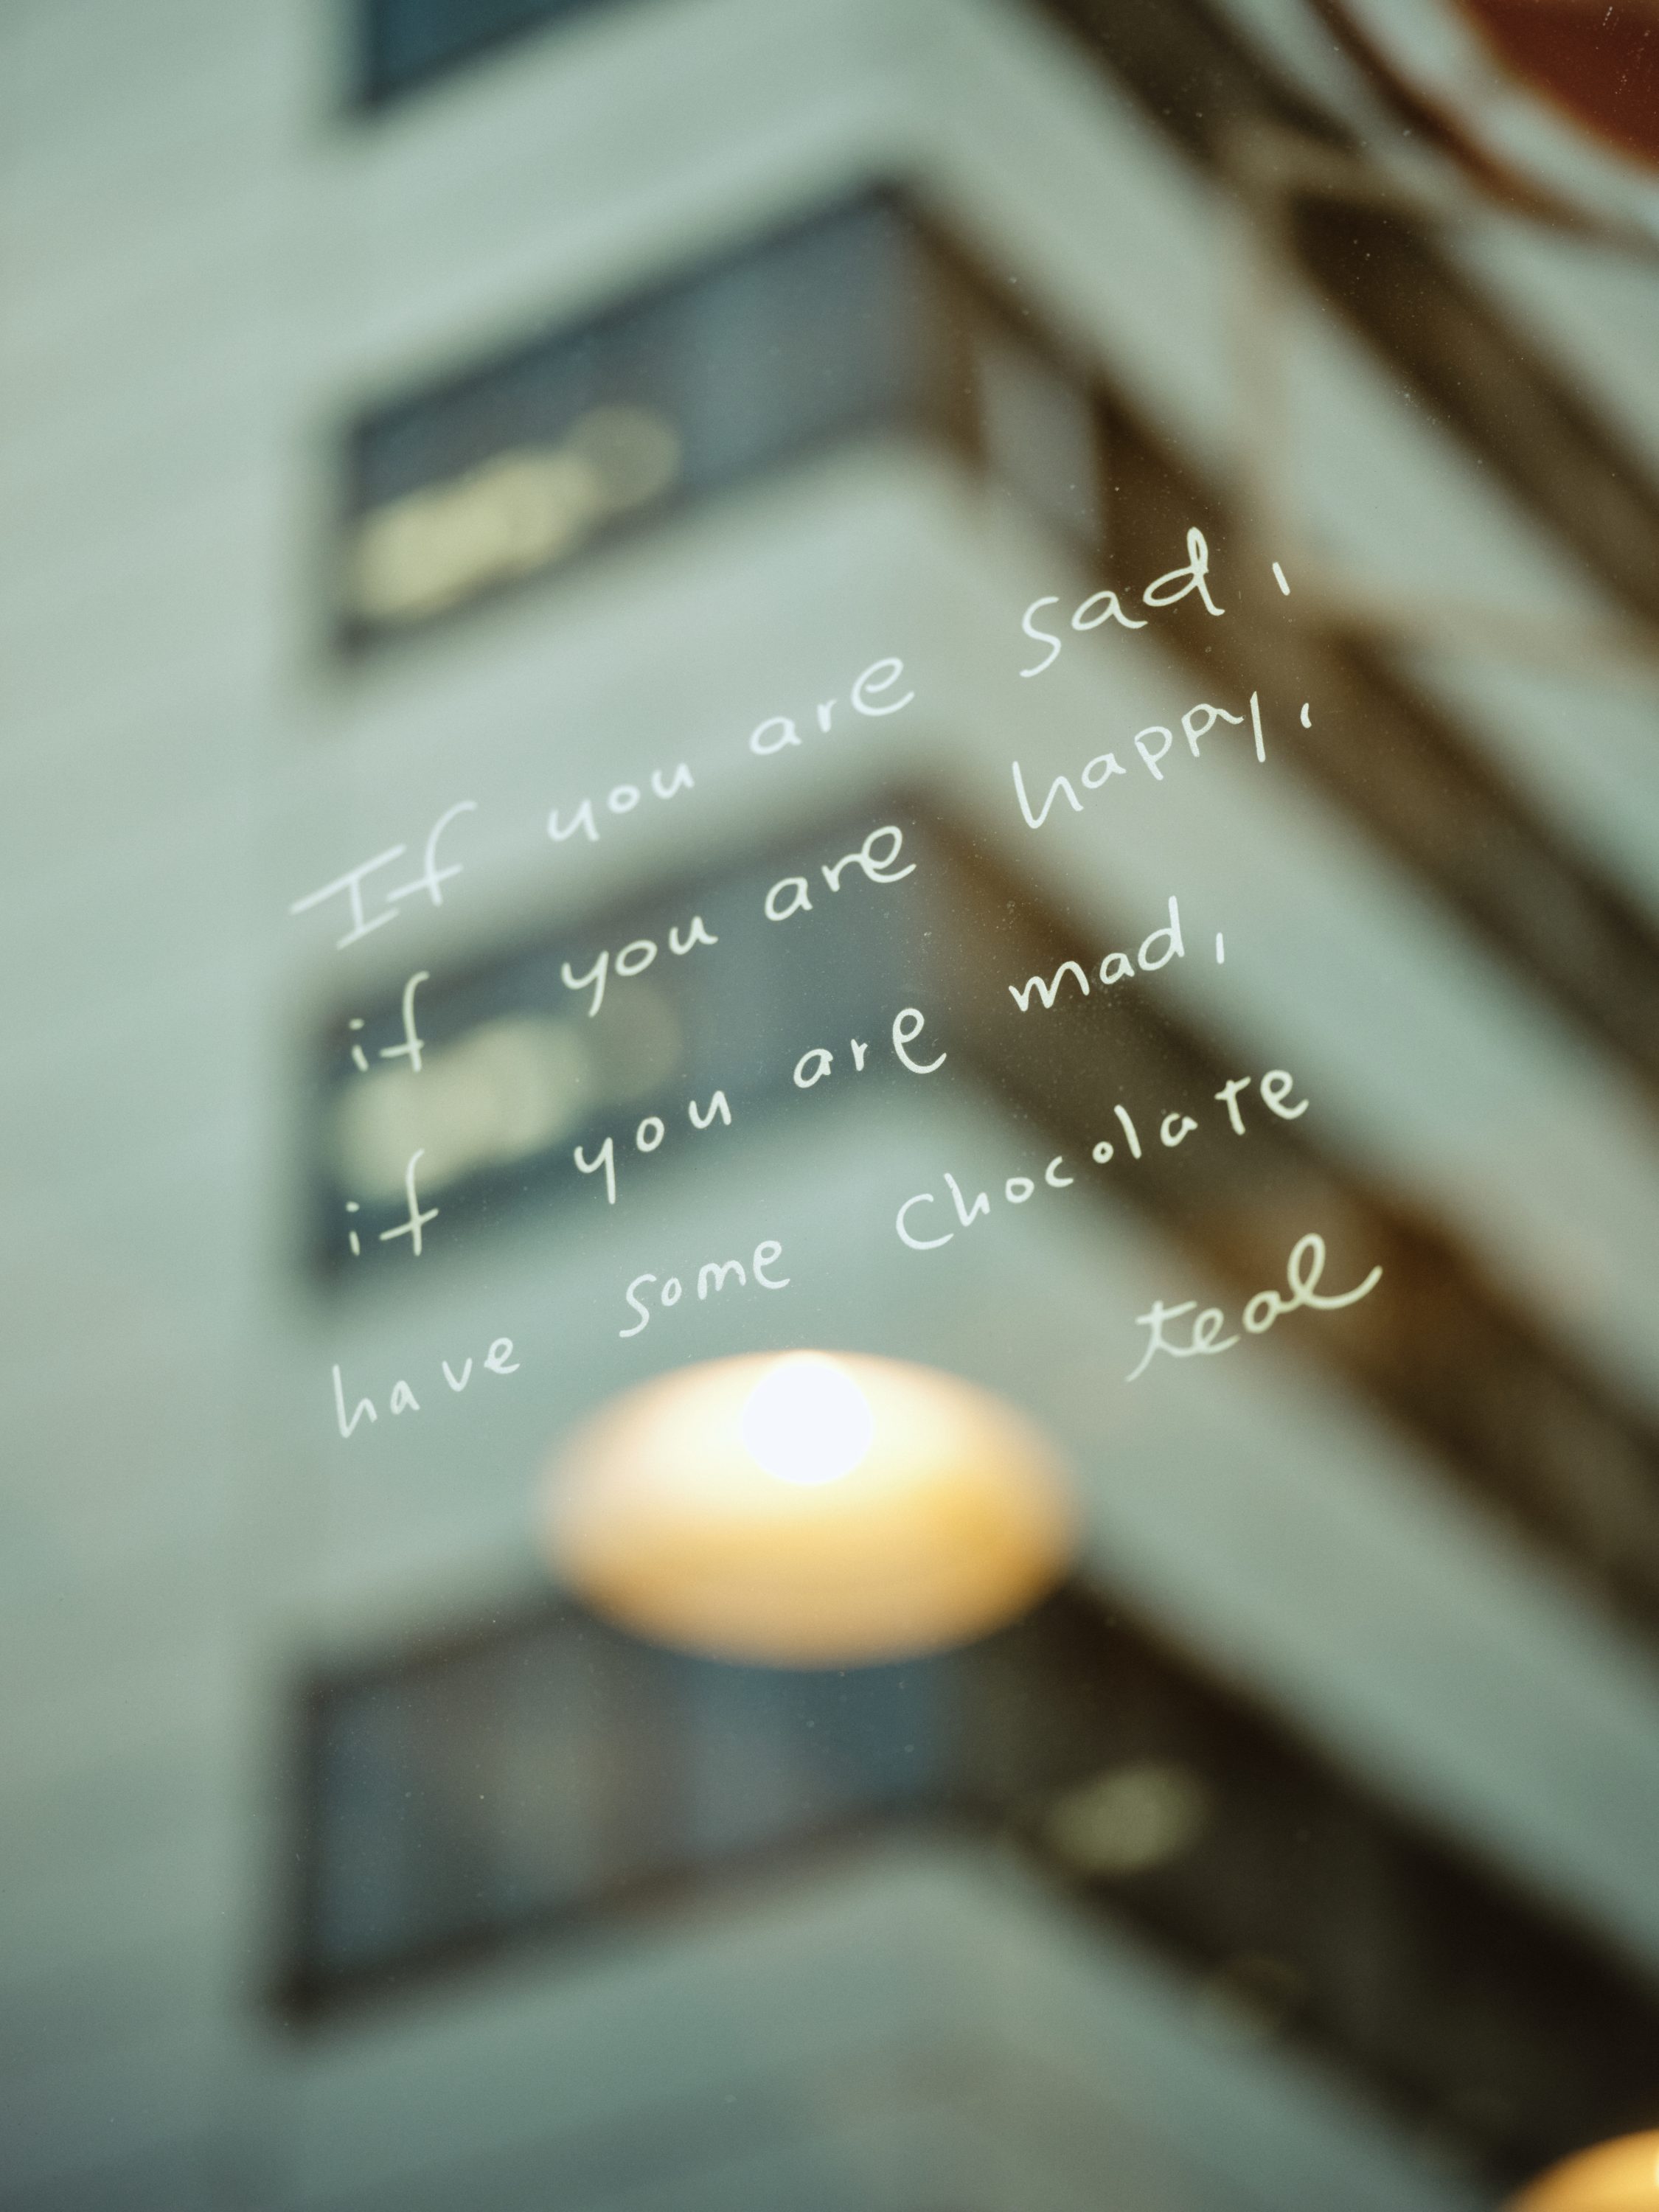 If you are sad,
if you are happy,
if you are mad,
have some Chocolate
teal